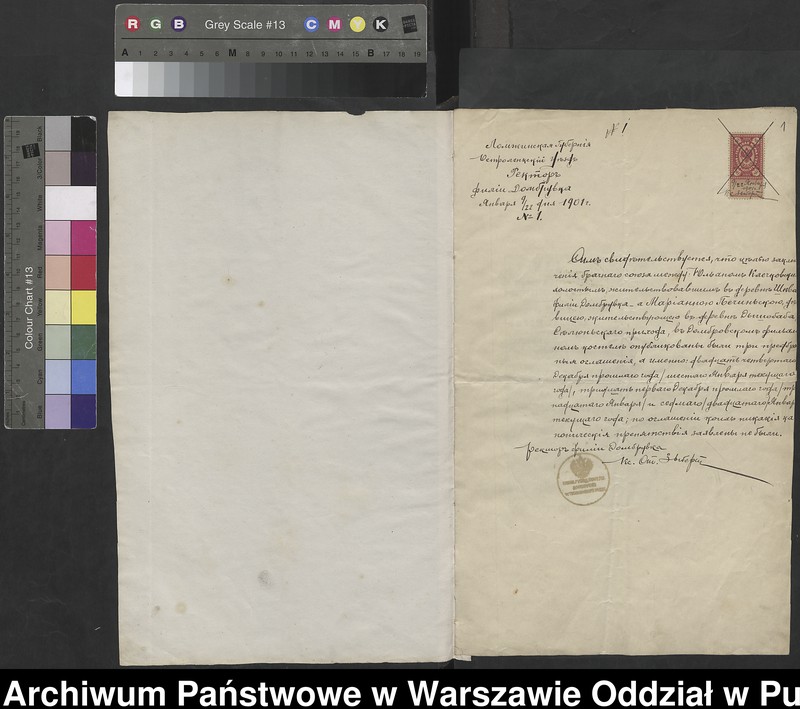 R G B Grey Scale #13 C M Y K
A 1 2 3 4 5 6 M 8 9 10 11 12 13 14 15 B 17 18 19
Colour Chart #13
№ 1
1
Ломжинская Губернія
Остроленскій уѣздъ
Ректоръ
филіи Домбрувка
Января 9/22 дня 1901 г.
№ 1.
Симъ свидѣтельствуется, что цѣлью заклю
ченія брачнаго союза между Юльаномъ
холостымъ, жительствовавшимъ въ деревнѣ
филіи Домбрувка а Маріанною дѣ
вицею, жительствующею въ деревнѣ
прихода, въ Домбровскомъ филіаль
номъ костелѣ опубликованы были три
ныя оглашенія, а именно: двадцать четвертаго
Декабря прошлаго года / шестаго Января текущаго
года /, тридцать перваго Декабря прошлаго года / три
надцатаго Января / и седмаго / двадцатаго Января
текущаго года; по оглашеніи коихъ никакія ка
ноническія препятствія заявлены не были.
Ректоръ филіи Домбрувка
Кс.
Archiwum Państwowe w Warszawie Oddział w Pu